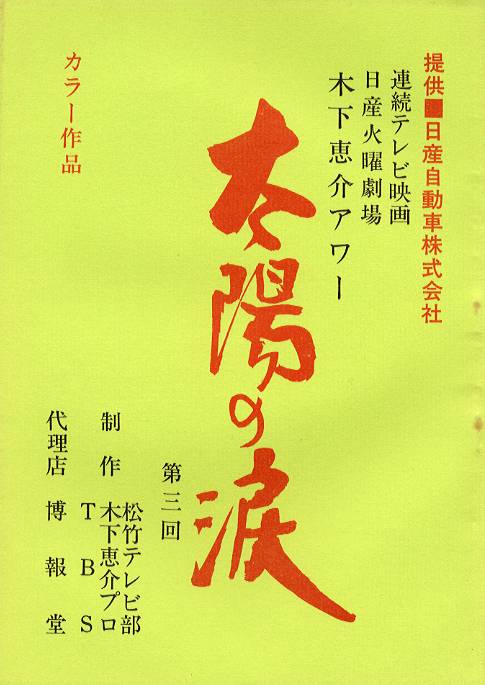 提供■日産自動車株式会社
連続テレビ映画
日産火曜劇場
木下恵介アワー
太陽の涙
カラー作品
第三回
制作 松竹テレビ部
木下恵介プロ
TBS
代理店 博報堂